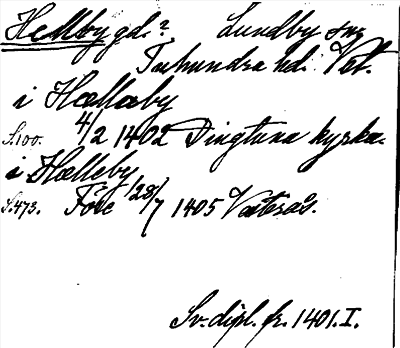 Hellby gd.? Lundby sn,
Tuhundra hd. Vstl.
i Hællæby
S.100. 4/2 1402 Dingtuna kyrka.
i Hælleby
S.473. Före 28/7 1405 Västerås.
Sv. dipl. fr. 1401. I.